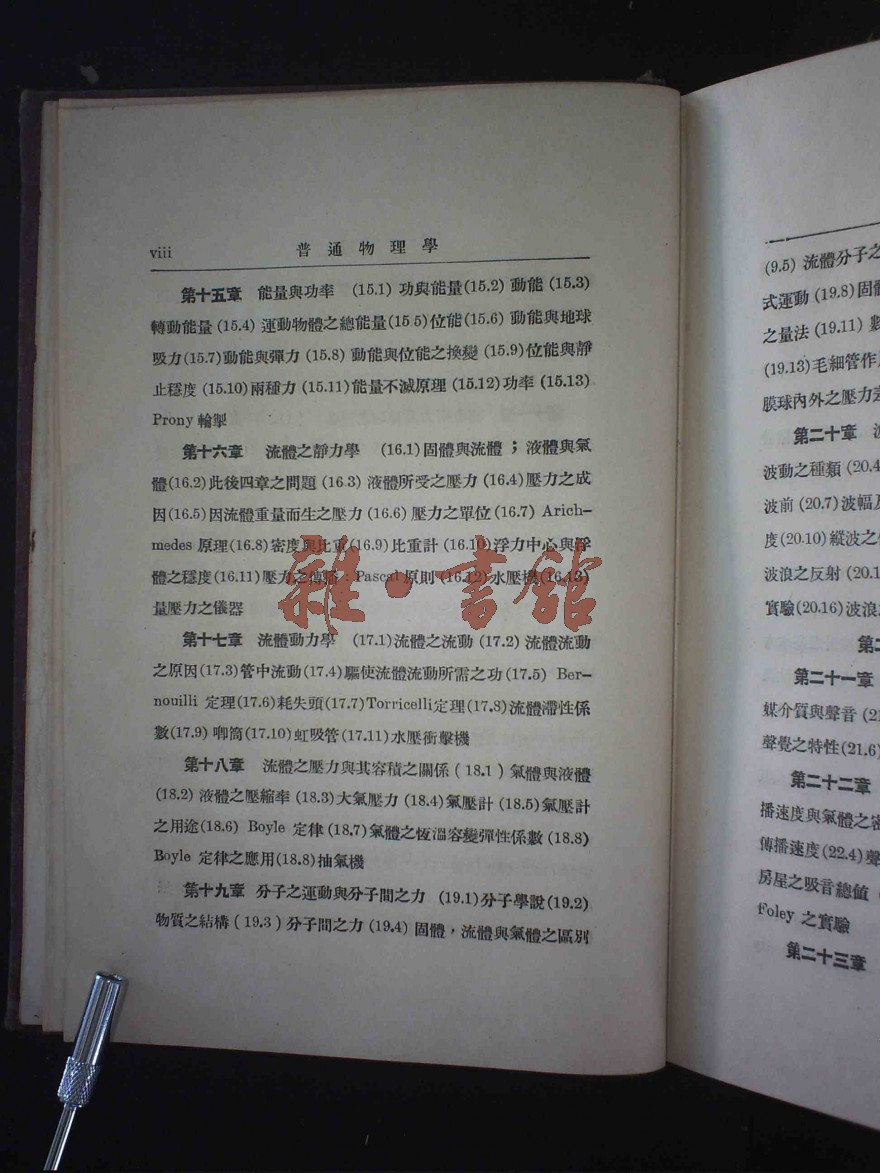 viii 普通物理學
第十五章 能量與功率 (15.1) 功與能量(15.2) 動能 (15.3)
轉動能量 (15.4) 運動物體之總能量(15 5)位能(15.6) 動能與地球
吸力(15.7)動能與彈力 (15.8) 動能與位能之換變 (15.9)位能與靜
止穩度 (15.10)兩種力 (15.11)能量不滅原理 (15.12)功率 (15.13)
Prony 輪掣
第十六章 流體之靜力學 (16.1)固體與流體；液體與氣
體(16.2)此後四章之問題 (16.3) 液體所受之壓力 (16.4)壓力之成
因(16.5)因流體重量而生之壓力 (16.6) 壓力之單位(16.7) Arich-
medes 原理(16.8)密度與比重(16.9)比重計 (16.10)浮力中心與浮
體之穩度(16.11)壓力之傳播：Pascal 原則 (16.12)水壓機(16.13)
量壓力之儀器
第十七章 流體動力學 (17.1)流體之流動 (17.2) 流體流動
之原因(17.3)管中流動(17.4)驅使流體流動所需之功(17.5) Ber-
nouilli 定理(17.6)耗失頭(17.7)Torricelli定理(17.8)流體滯性係
數(17.9) 唧筒(17.10)虹吸管(17.11)水壓衝擊機
第十八章 流體之壓力與其容積之關係 (18.1) 氣體與液體
(18.2) 液體之壓縮率 (18.3)大氣壓力 (18.4)氣壓計 (18.5)氣壓計
之用途(18.6) Boyle 定律(18.7)氣體之恆溫容變彈性係數 (18.8)
Boyle 定律之應用(18.8)抽氣機
第十九章 分子之運動與分子間之力 (19.1)分子學說(19.2)
物質之結構 (19.3) 分子間之力 (19.4) 固體，流體與氣體之區別
雜·書館
(9.5) 流體分子之
式運動 (19.8)固體
之量法 (19.11) 
(19.13)毛細管作
膜球內外之壓力差
第二十章 波
波動之種類 (20.4
波前 (20.7) 波幅及
度(20.10)縱波之
波浪之反射 (20.1
實驗(20.16)波浪
第二
第二十一章
媒介質與聲音 (21
聲覺之特性(21.6)
第二十二章
播速度與氣體之密
傳播速度(22.4)聲
房屋之吸音總値 (
Foley 之實驗
第二十三章